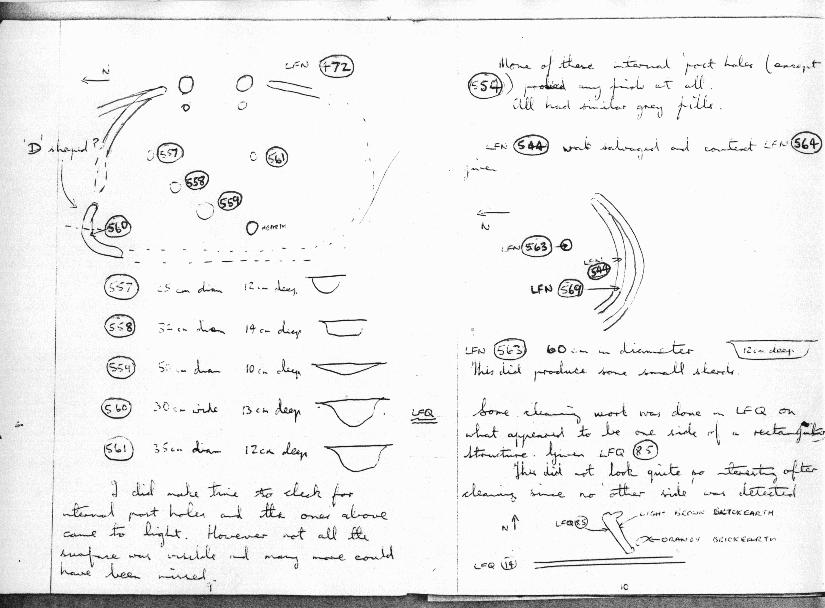 LFN 472
N
'D' shaped ?
557
561
558
559
560
HEARTH
557 25 cm diam 12 cm deep
558 32 cm diam 14 cm deep
559 50 cm diam 10 cm deep
560 30 cm wide 13 cm deep
561 35 cm diam 12 cm deep
I did make time to check for
internal post holes and the ones above
came to light. However not all the
surface was visible and many more could
have been missed.
9
None of these internal post holes (except
554) produced any finds at all.
All had similar grey fills.
LFN 544 was salvaged and context LFN 564
given
N
LFN 563
LFN
544
LFN 569
LFN 563 60 cm in diameter 12 cm deep
This did produce some small sherds.
LFQ
Some cleaning work was done in LFQ on
what appeared to be one side of a rectangular
structure. Given LFQ 85
This did not look quite so interesting after
cleaning since no other side was detected
N
LFQ 85
LIGHT BROWN BRICKEARTH
ORANGY BRICKEARTH
LFQ 14
10